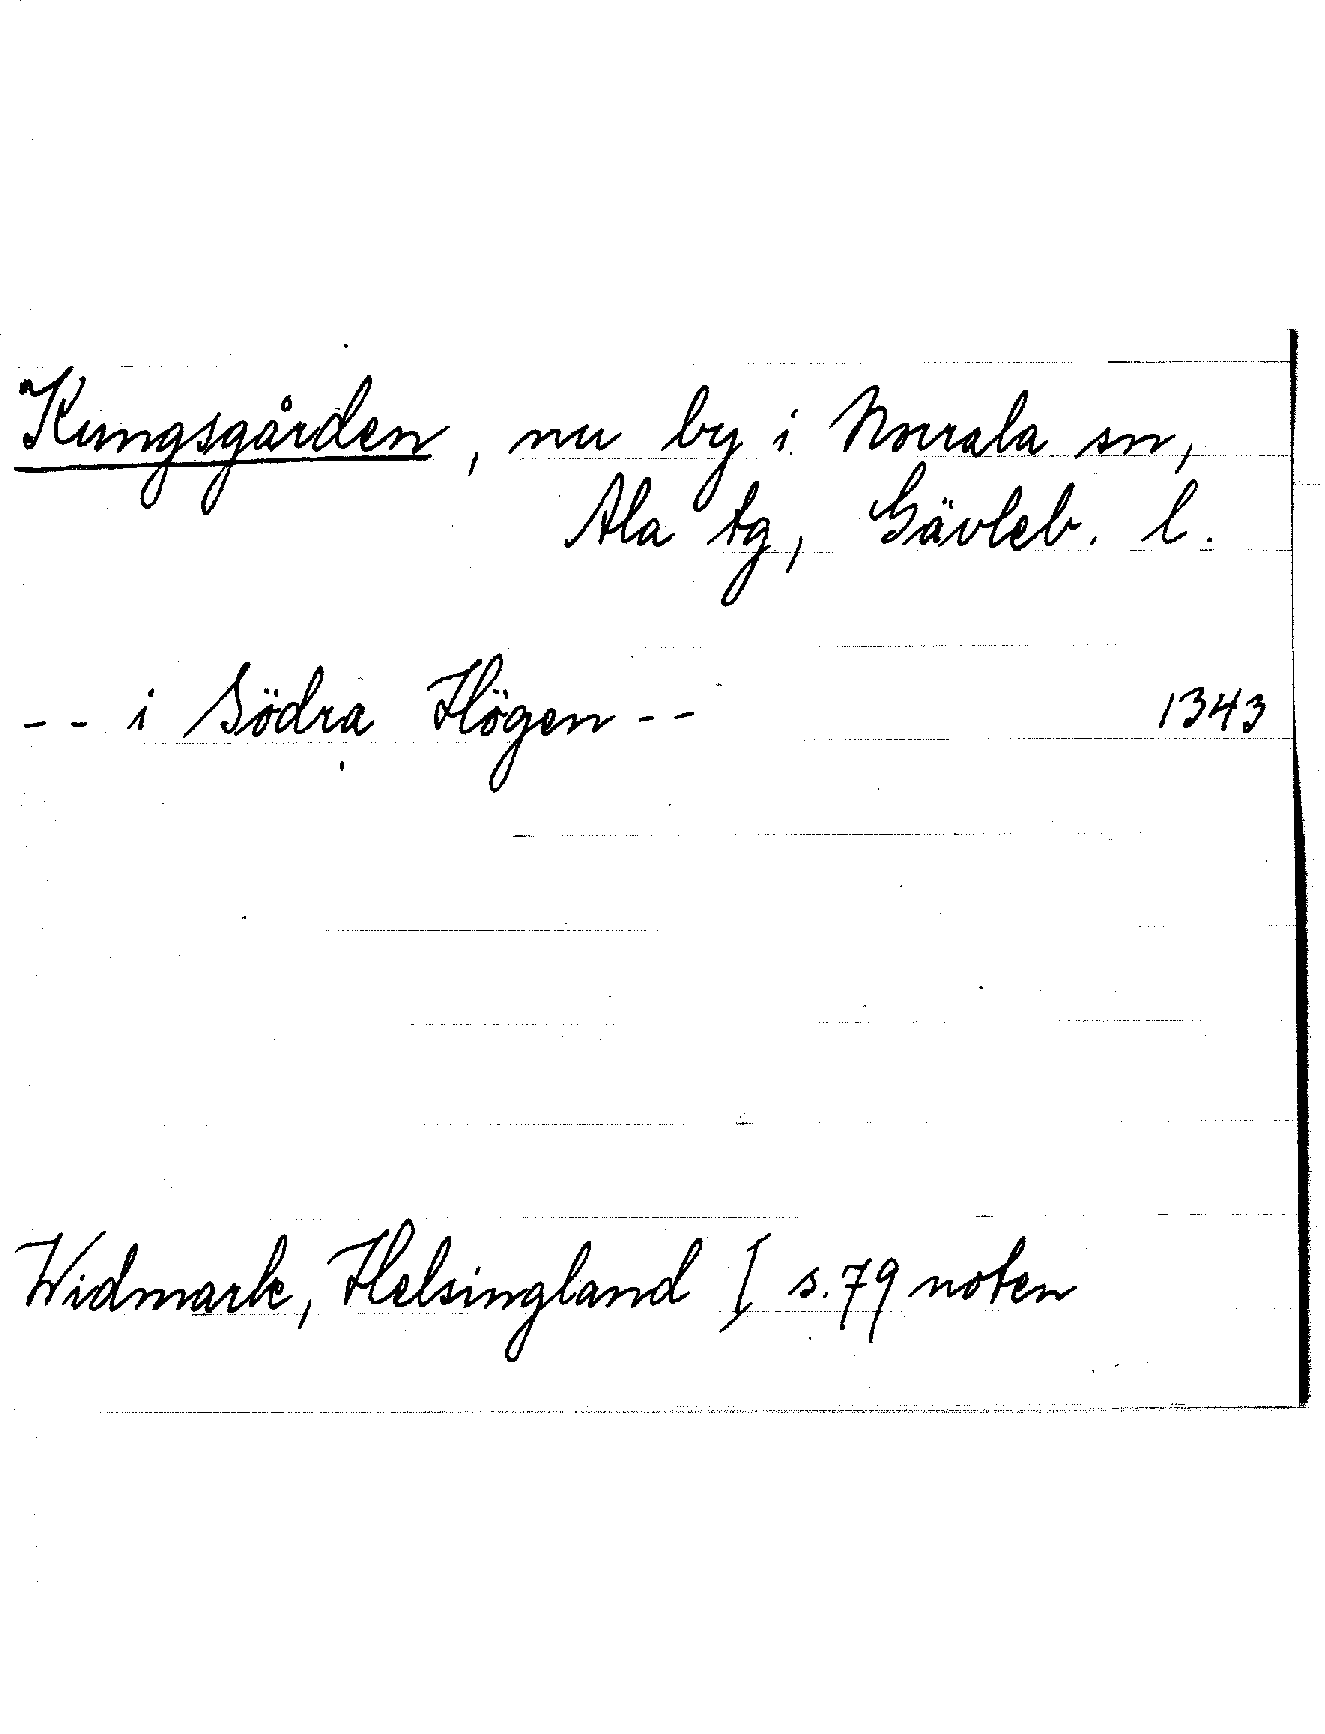 Kungsgården, nu by i Norrala sn,
Ala tg, Gävleb. l.
-- i Södra Högen -- 1343
Widmark, Helsingland I s. 79 noten